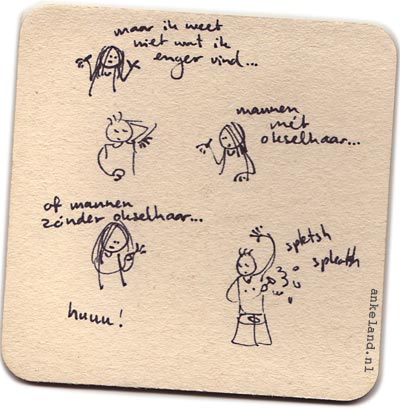 maar ik weet
niet wat ik
enger vind...
mannen
mét
okselhaar...
of mannen
zónder okselhaar...
spletsh
splettsh
huuu!
ankeland.nl